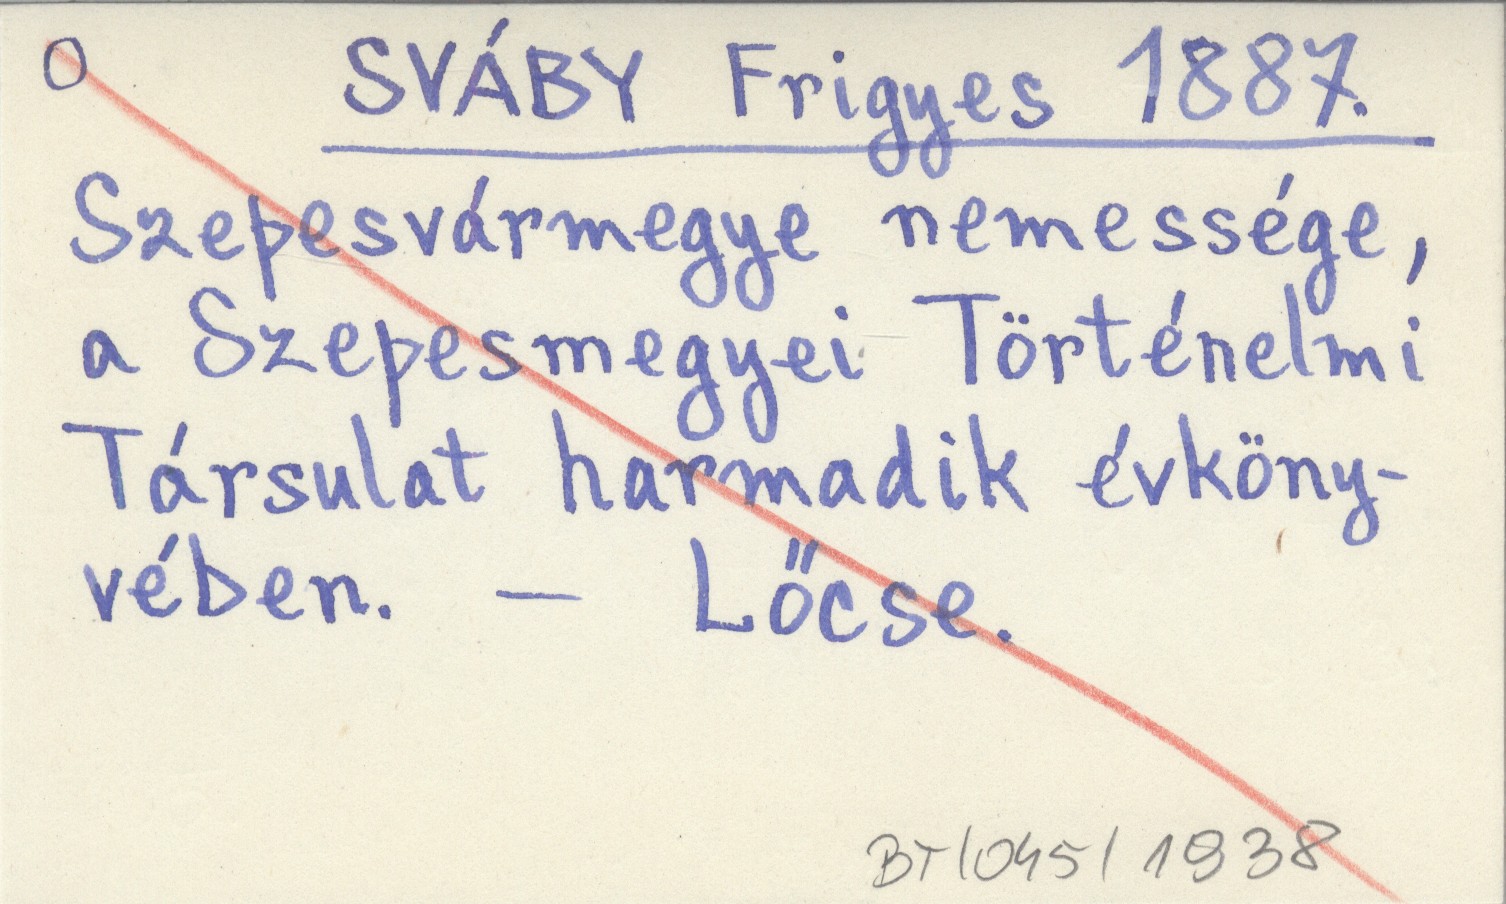 O SVÁBY Frigyes 1887.
Szepesvármegye nemessége,
a Szepesmegyei Történelmi
Társulat harmadik évköny-
vében. — Lőcse.
BT/045/1938